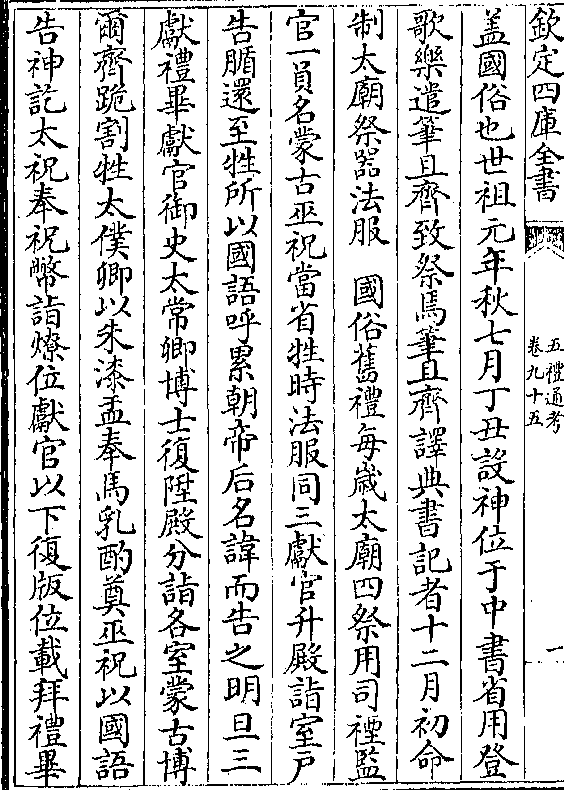 欽定四庫全書
五禮通考
卷九十五
一
盖國俗也世祖元年秋七月丁丑設神位于中書省用登
歌樂遣筆且齊致祭馬筆且齊譯典書記者十二月初命
制太廟祭器法服　國俗舊禮每歲太廟四祭用司禋監
官一員名蒙古巫祝當省牲時法服同三獻官升殿詣室戶
告腯還至牲所以國語呼累朝帝后名諱而告之明旦三
獻禮畢獻官御史太常卿博士復陞殿分詣各室蒙古博
爾齊跪割牲太僕卿以朱漆盂奉馬乳酌奠巫祝以國語
告神訖太祝奉祝幣詣燎位獻官以下復版位載拜禮畢